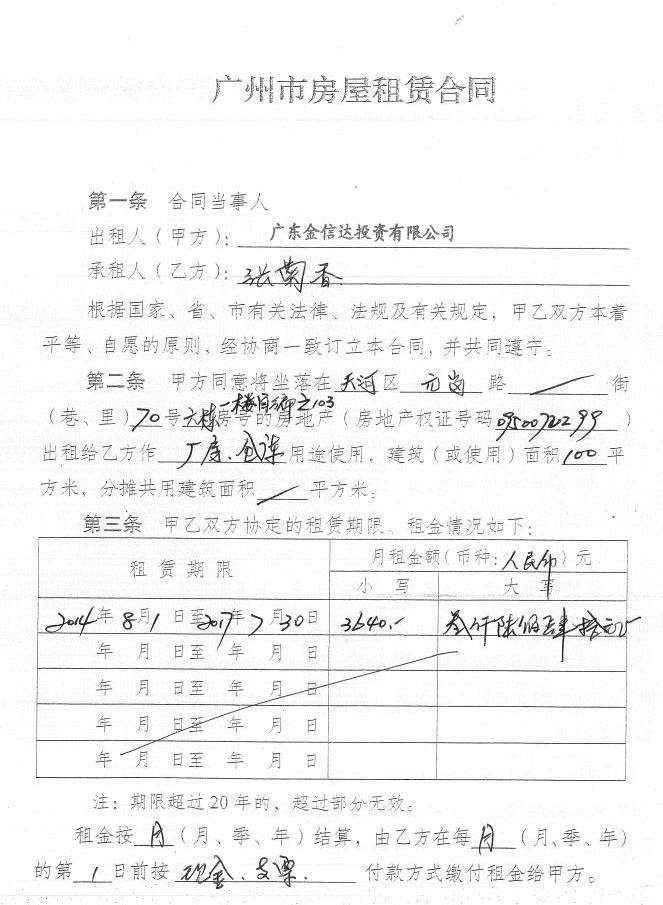 广州市房屋租赁合同
第一条 合同当事人
出租人（甲方）：广东金信达投资有限公司
承租人（乙方）：张菊香
根据国家、省、市有关法律、法规及有关规定，甲乙双方本着
平等、自愿的原则，经协商一致订立本合同，并共同遵守。
第二条 甲方同意将坐落在天河区元岗路 街
（巷、里）70号六栋一楼自编之103房号的房地产（房地产权证号码0950072299）
出租给乙方作厂房、仓库用途使用，建筑（或使用）面积100平
方米，分摊共用建筑面积／平方米。
第三条 甲乙双方协定的租赁期限、租金情况如下：
租赁期限 月租金额（币种：人民币）元
小写 大写
2014年8月1日至2017年7月30日 3640.- 叁仟陆佰肆拾元正
年 月 日至 年 月 日
年 月 日至 年 月 日
年 月 日至 年 月 日
年 月 日至 年 月 日
注：期限超过20年的，超过部分无效。
租金按月（月、季、年）结算，由乙方在每月（月、季、年）
的第1日前按现金、支票付款方式缴付租金给甲方。